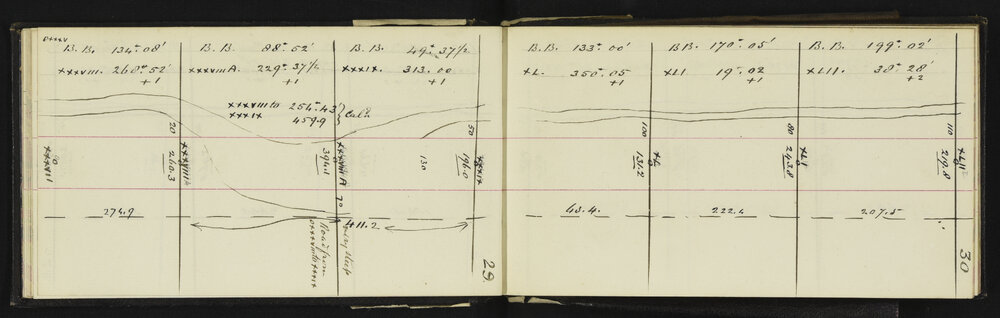 B.B. 134° 08' B.B. 88° 52' B.B. 49° 37½
xxxviii. 268° 52' xxxviiiA. 229° 37½ xxxix. 313. 00
+1 +1 +1
xxxviii to 254° 43' } Calcd
xxxix 459.9
20 50
xxxvii 260.3 xxxviii 394.1 xxxviii A 70 130 196.0 xxxix
274.9 411.2
very steep
Road from
xxxviii to xxxix
29.
B.B. 133° 00' B.B. 170° 05' B.B. 199° 02'
xL. 350° 05 xLI 19° 02 xLII. 38° 28'
+1 +1 +2
100 80 110
131.2 xL 243.8 xLI 219.8 xLII
43.4. 222.1 207.5
30